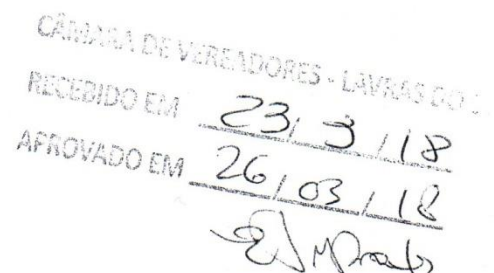 CÂMARA DE VEREADORES - LAVRAS DO
RECEBIDO EM 23/3/18
APROVADO EM 26/03/18